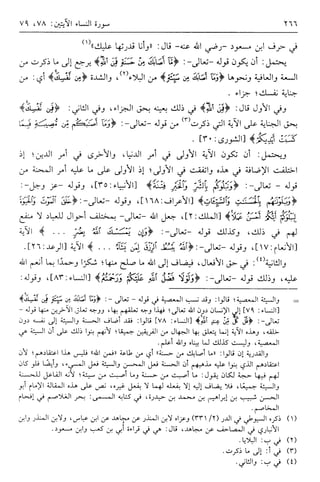 ٢٦٦
سورة النساء الآيتين: ٧٨، ٧٩
في حرف ابن مسعود -رضي الله عنه- قال: «وأنا قدرتها عليك»(١)
يحتمل: أن يكون قوله -تعالى-: ﴿مَّآ أَصَابَكَ مِنْ حَسَنَةٍ فَمِنَ ٱللَّهِ﴾ يرجع إلى ما ذكرت من
السعة والعافية ونحوها ﴿وَمَآ أَصَابَكَ مِن سَيِّئَةٍ﴾ من البلاء(٢)، والشدة ﴿فَمِن نَّفْسِكَ﴾ أي: من
جناية نفسك؛ جزاء.
وفي الأول قال: ﴿فَمِنَ ٱللَّهِ﴾ في ذلك بعينه بحق الجزاء، وفي الثاني: ﴿فَمِن نَّفْسِكَ﴾
بحق الجناية على الآية التي ذكرت(٣) من قوله -تعالى-: ﴿وَمَآ أَصَٰبَكُم مِّن مُّصِيبَةٍ فَبِمَا
كَسَبَتْ أَيْدِيكُمْ﴾ [الشورى: ٣٠].
ويحتمل: أن تكون الآية الأولى في أمر الدنيا، والأخرى في أمر الدين؛ إذ
اختلفت الإضافة في هذه واتفقت في الأولى؛ إذ الأولى على ما عليه أمر المحنة من
قوله -تعالى-: ﴿وَنَبْلُوكُم بِٱلشَّرِّ وَٱلْخَيْرِ فِتْنَةً﴾ [الأنبياء: ٣٥]، وقوله -عز وجل-:
﴿وَبَلَوْنَٰهُم بِٱلْحَسَنَٰتِ وَٱلسَّيِّـَٔاتِ﴾ [الأعراف: ١٦٨]، وقوله -تعالى-: ﴿خَلَقَ ٱلْمَوْتَ وَٱلْحَيَوٰةَ
لِيَبْلُوَكُمْ أَيُّكُمْ أَحْسَنُ عَمَلًا﴾ [الملك: ٢]، جعل الله -تعالى- بمختلف أحوال للعباد لا منفع
لهم في ذلك، وكذلك قوله -تعالى-: ﴿وَإِن يَمْسَسْكَ ٱللَّهُ بِضُرٍّ ...﴾ الآية
[الأنعام: ١٧]، وقوله -تعالى-: ﴿ٱللَّهُ يَبْسُطُ ٱلرِّزْقَ لِمَن يَشَآءُ ...﴾ الآية [الرعد: ٢٦].
والثانية(٤): في حق الأفعال، فيضاف إلى الله ما صلح منها؛ شكرًا وحمدًا بما أنعم الله
عليه، وذلك قوله -تعالى-: ﴿وَلَوْلَا فَضْلُ ٱللَّهِ عَلَيْكُمْ وَرَحْمَتُهُ﴾ [النساء: ٨٣]، وقوله:
= والسيئة المعصية؛ قالوا: وقد نسب المعصية في قوله -تعالى-: ﴿مَّآ أَصَابَكَ مِنْ حَسَنَةٍ فَمِنَ ٱللَّهِ﴾
[النساء: ٧٩] إلى الإنسان دون الله تعالى؛ فهذا وجه تعلقهم بها، ووجه تعلق الآخرين منها قوله -
تعالى-: ﴿قُلْ كُلٌّ مِّنْ عِندِ ٱللَّهِ﴾ [النساء: ٧٨] قالوا: فقد أضاف الحسنة والسيئة إلى نفسه دون
خلقه، وهذه الآية إنما يتعلق بها الجهال من الفريقين جميعًا؛ لأنهم بنوا ذلك على أن السيئة هي
المعصية، وليست كذلك لما بيناه والله أعلم.
والقدرية إن قالوا: «ما أصابك من حسنة» أي من طاعة «فمن الله» فليس هذا اعتقادهم؛ لأن
اعتقادهم الذي بنوا عليه مذهبهم أن الحسنة فعل المحسن والسيئة فعل المسيء، وأيضًا فلو كان
لهم فيها حجة لكان يقول: ما أصبت من حسنة وما أصبت من سيئة؛ لأنه الفاعل للحسنة
والسيئة جميعًا، فلا يضاف إليه إلا بفعله لهما لا بفعل غيره، نص على هذه المقالة الإمام أبو
الحسن شبيب بن إبراهيم بن محمد بن حيدرة، في كتابه المسمى: بحز الغلاصم في إفحام
المخاصم.
(١) ذكره السيوطي في الدر (٢/ ٣٣١) وعزاه لابن المنذر عن مجاهد عن ابن عباس، ولابن المنذر وابن
الأنباري في المصاحف عن مجاهد، قال: هي في قراءة أبي بن كعب وابن مسعود.
(٢) في ب: البلايا.
(٣) في أ: إلى ما ذكرت.
(٤) في ب: والثاني.